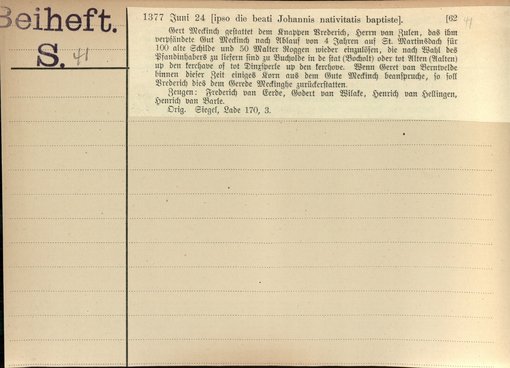 Beiheft.
S. 41
1377 Juni 24 [ipso die beati Johannis nativitatis baptiste]. [62 41
Gert Meckinch gestattet dem Knappen Vrederich, Herrn van Zulen, das ihm
verpfändete Gut Meckinch nach Ablauf von 4 Jahren auf St. Martinsdach für
100 alte Schilde und 50 Malter Roggen wieder einzulösen, die nach Wahl des
Pfandinhabers zu liefern sind zu Bucholde in de stat (Bocholt) oder tot Alten (Aalten)
up den kerchove of tot Dinxperle up den kerchove. Wenn Geret van Berntvelde
binnen dieser Zeit einiges Korn aus dem Gute Meckinch beanspruche, so soll
Vrederich dies dem Gerede Meckinghe zurückerstatten.
Zeugen: Frederich van Eerde, Godert van Wilake, Henrich van Hellingen,
Henrich van Barle.
Orig. Siegel, Lade 170, 3.